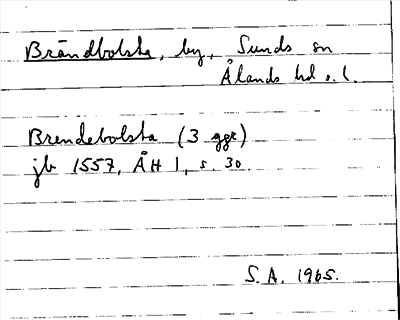 Brändbolsta, by, Sunds sn
Ålands hd s. l.
Brendebolsta (3 ggr)
jb 1557, ÅH 1, s. 30
S.A. 1965.